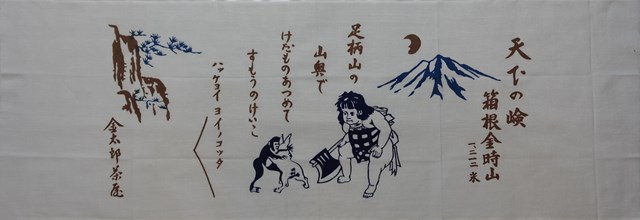 天下の嶮
箱根金時山
一二一二米
足柄山の
山奥で
けだものあつめて
すもうのけいこ
ハッケヨイ ヨイ コッタ
金太郎茶屋